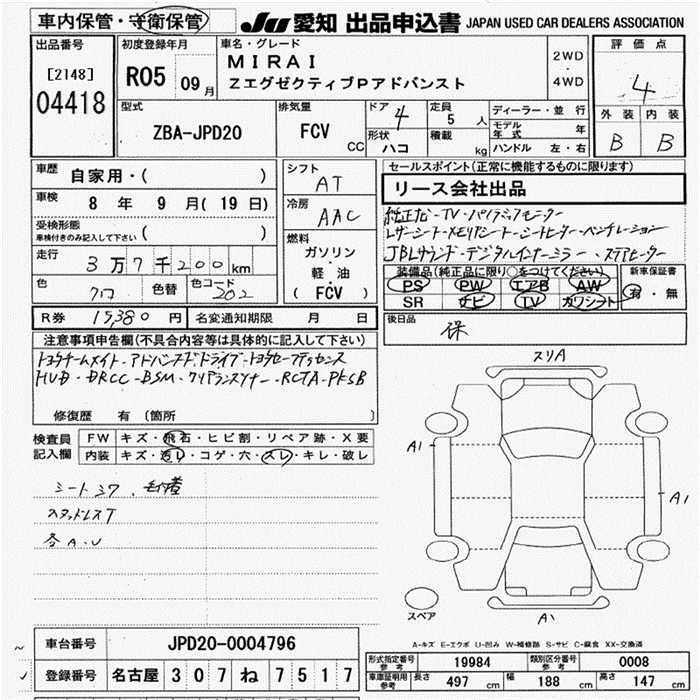 車内保管・守衛保管
JU 愛知 出品申込書 JAPAN USED CAR DEALERS ASSOCIATION
出品番号
[2148]
04418
初度登録年月
R05 09月
車名・グレード
MIRAI
ZエグゼクティブPアドバンスト
2WD
・
4WD
評価点
4
外装 内装
B B
型式
ZBA-JPD20
排気量
FCV
CC
ドア 4
形状
ハコ
定員
5 人
積載
kg
ディーラー・並行
モデル年式 年
ハンドル 左・右
車歴
自家用・( )
車検
8 年 9 月 ( 19 日)
受検形態
車検付きのみ記入して下さい ( )
走行
3 万 7 千 200 km
色
クロ
色替
色コード
202
シフト
AT
冷房
AAC
燃料
ガソリン
・
軽油
( FCV )
セールスポイント(正常に機能するものに限り)
リース会社出品
純正ナビ・TV・パノラミックモニター
レザーシート・メモリアシート・シートヒーター・ベンチレーション
JBLサウンド・デジタルインナーミラー・ステアヒーター
装備品(純正品に限り○をつけてください)
PS PW エアB AW
SR ナビ TV カワシート
新車保証書
有・無
後日品
保
R券 15380 円
名変通知期限 月 日
注意事項申告欄(不具合内容等は具体的に記入して下さい)
トヨタチームメイト・アドバンスドドライブ・トヨタセーフティセンス
HUD・DRCC・BSM・クリアランスソナー・RCTA・PKSB
修復歴 有 (箇所 )
検査員記入欄
FW キズ・飛石・ヒビ割・リペア跡・X要
内装 キズ・汚レ・コゲ・穴・スレ・キレ・破レ
シートシワ、
スタッドレスT
各A・U
スリA
A1
A1
A1
スペア
A-キズ E-エクボ U-凹み W-補修跡 S-サビ C-腐食 XX-交換済
車台番号 JPD20-0004796
登録番号 名古屋 307 ね 7517
形式指定番号参考 19984
類別区分番号参考 0008
車庫証明用参考 長さ 497 cm 幅 188 cm 高さ 147 cm